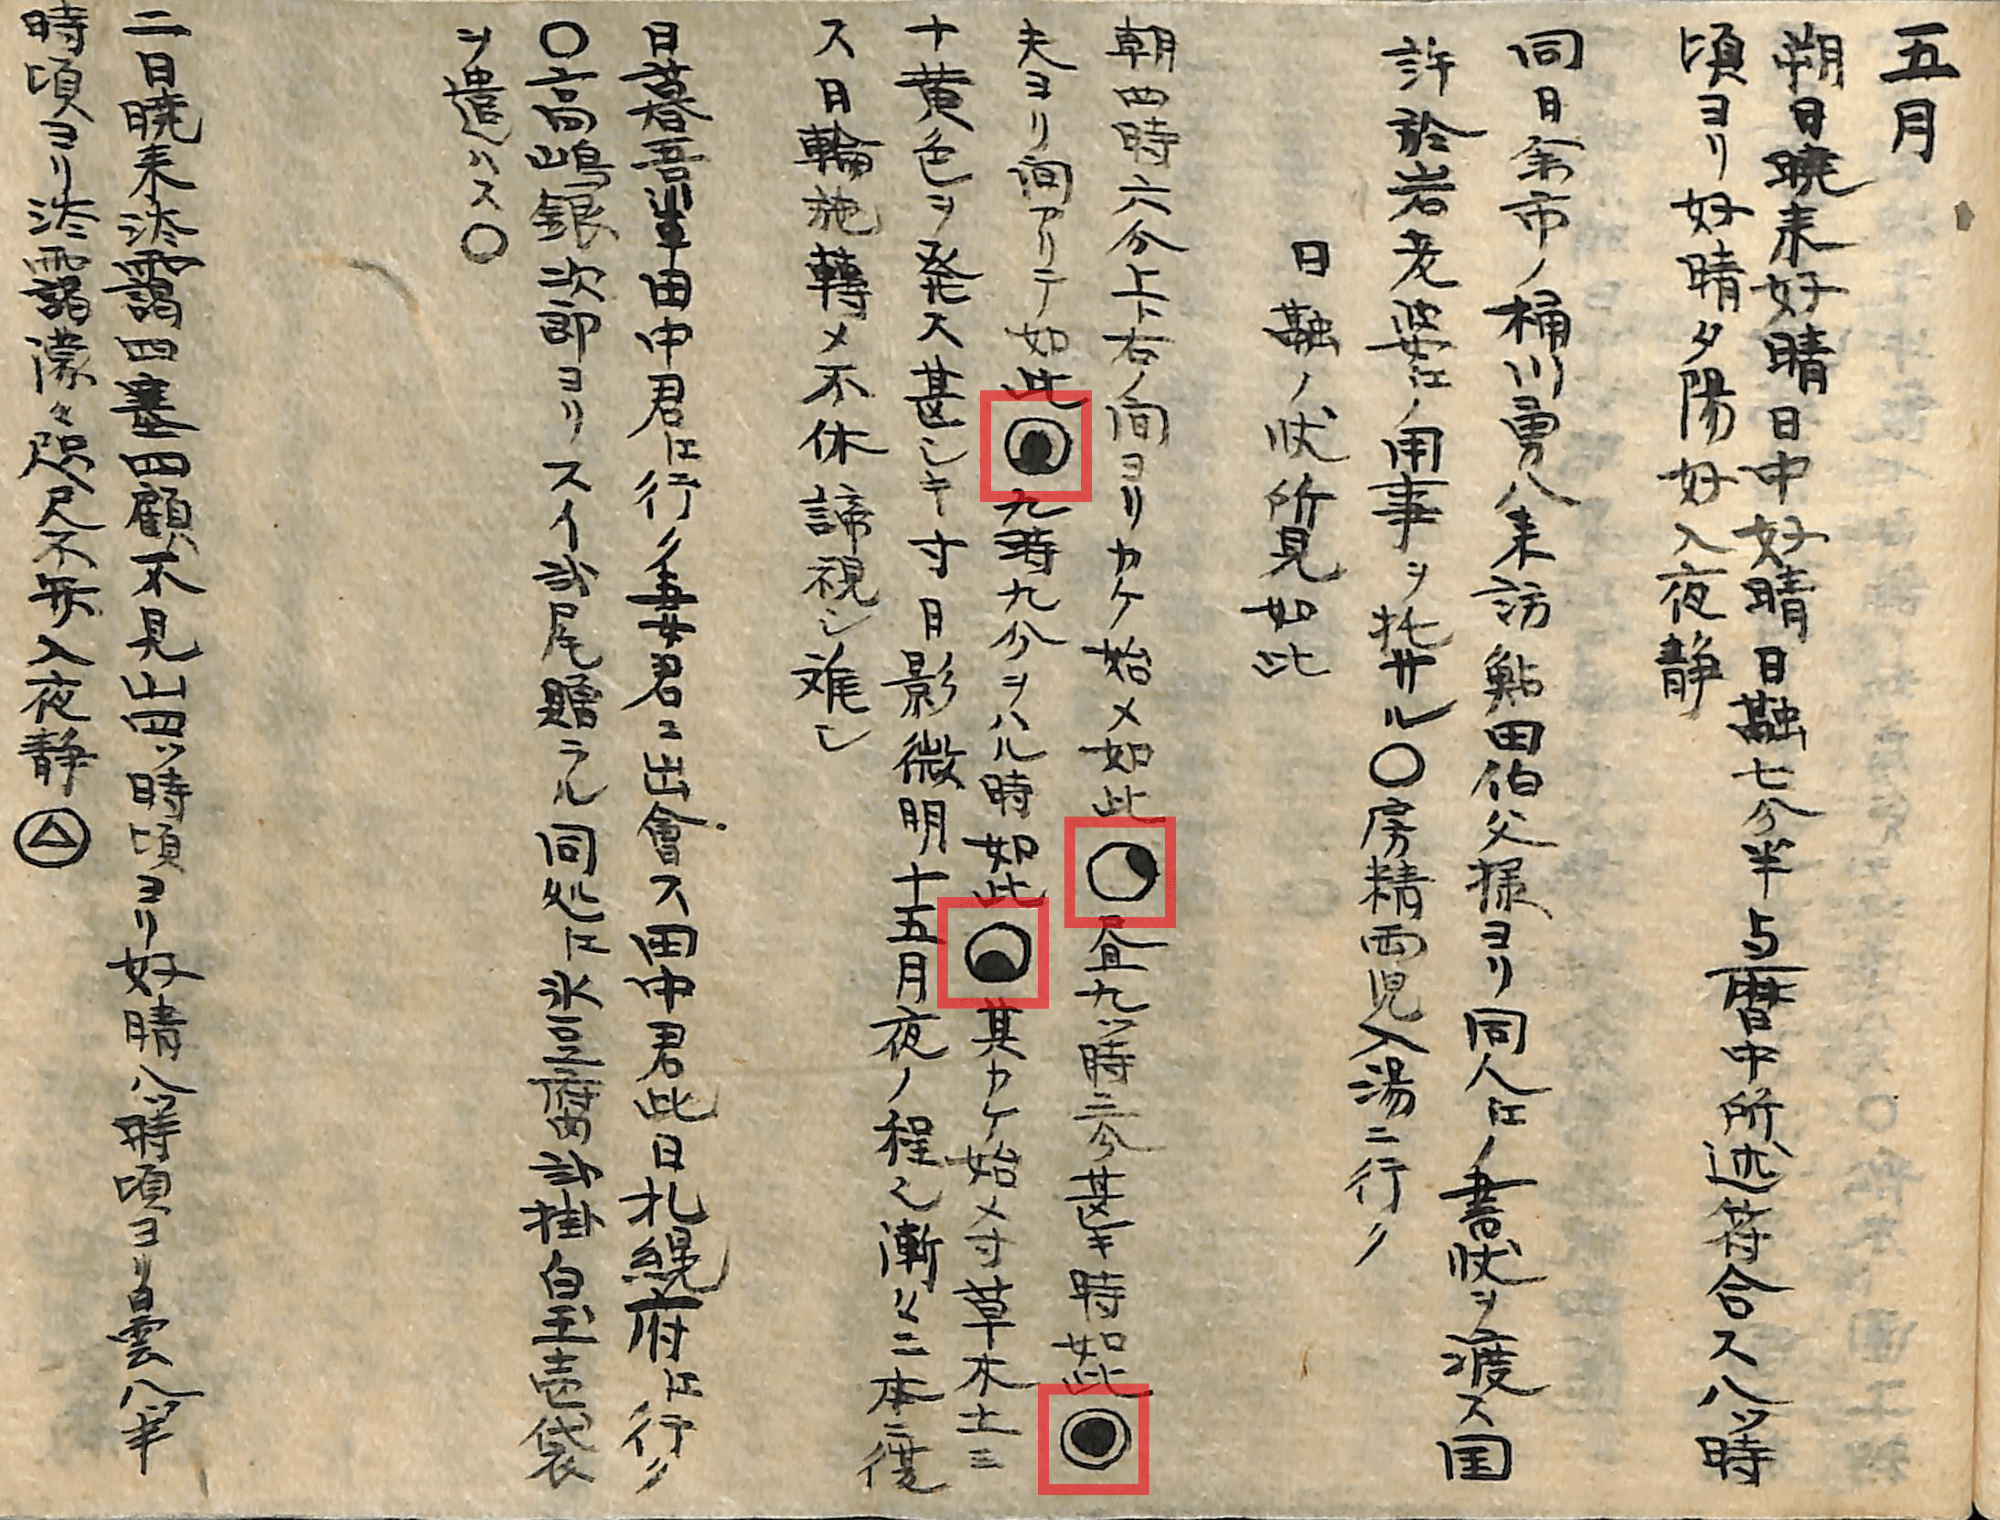 五月
朔日暁来好晴日中好晴日蝕七分半与暦中所述符合ス八ツ時
頃ヨリ好晴夕陽好入夜静
同日余市ノ桶川勇八来訪鮎田伯父様ヨリ同人江ノ書状ヲ渡ス国
許於岩老婆江ノ用事ヲ托サル〇房精両児入湯ニ行ク
日蝕ノ状所見如此
朝四時六分上ト右ノ間ヨリカケ始メ如此 昼九ツ時三分甚キ時如此
夫ヨリ間アリテ如此 九時九分ヲハル時如此 其カケ始メ寸草木土ミ
ナ黄色ヲ発ス甚シキ寸日影微明十五月夜ノ程也漸〻ニ本ニ復
ス日輪施轉メ不休諦視シ難シ
日暮吾輩田中君江行ク妻君ニ出會ス田中君此日札幌府江行ク
〇高嶋銀次郎ヨリスイ弐尾贈ラル同処江氷豆腐弐掛白玉壱袋
ヲ遣ハス〇
二日暁来渗靄四塞四顧不見山四ツ時頃ヨリ好晴八ツ時頃ヨリ白雲八ツ半
時頃ヨリ渗靄濛々咫尺不弁入夜静